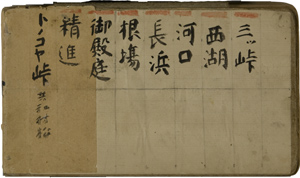 三ッ峠
西湖
河口
長浜
根場
御殿庭
精進
トノコヤ峠